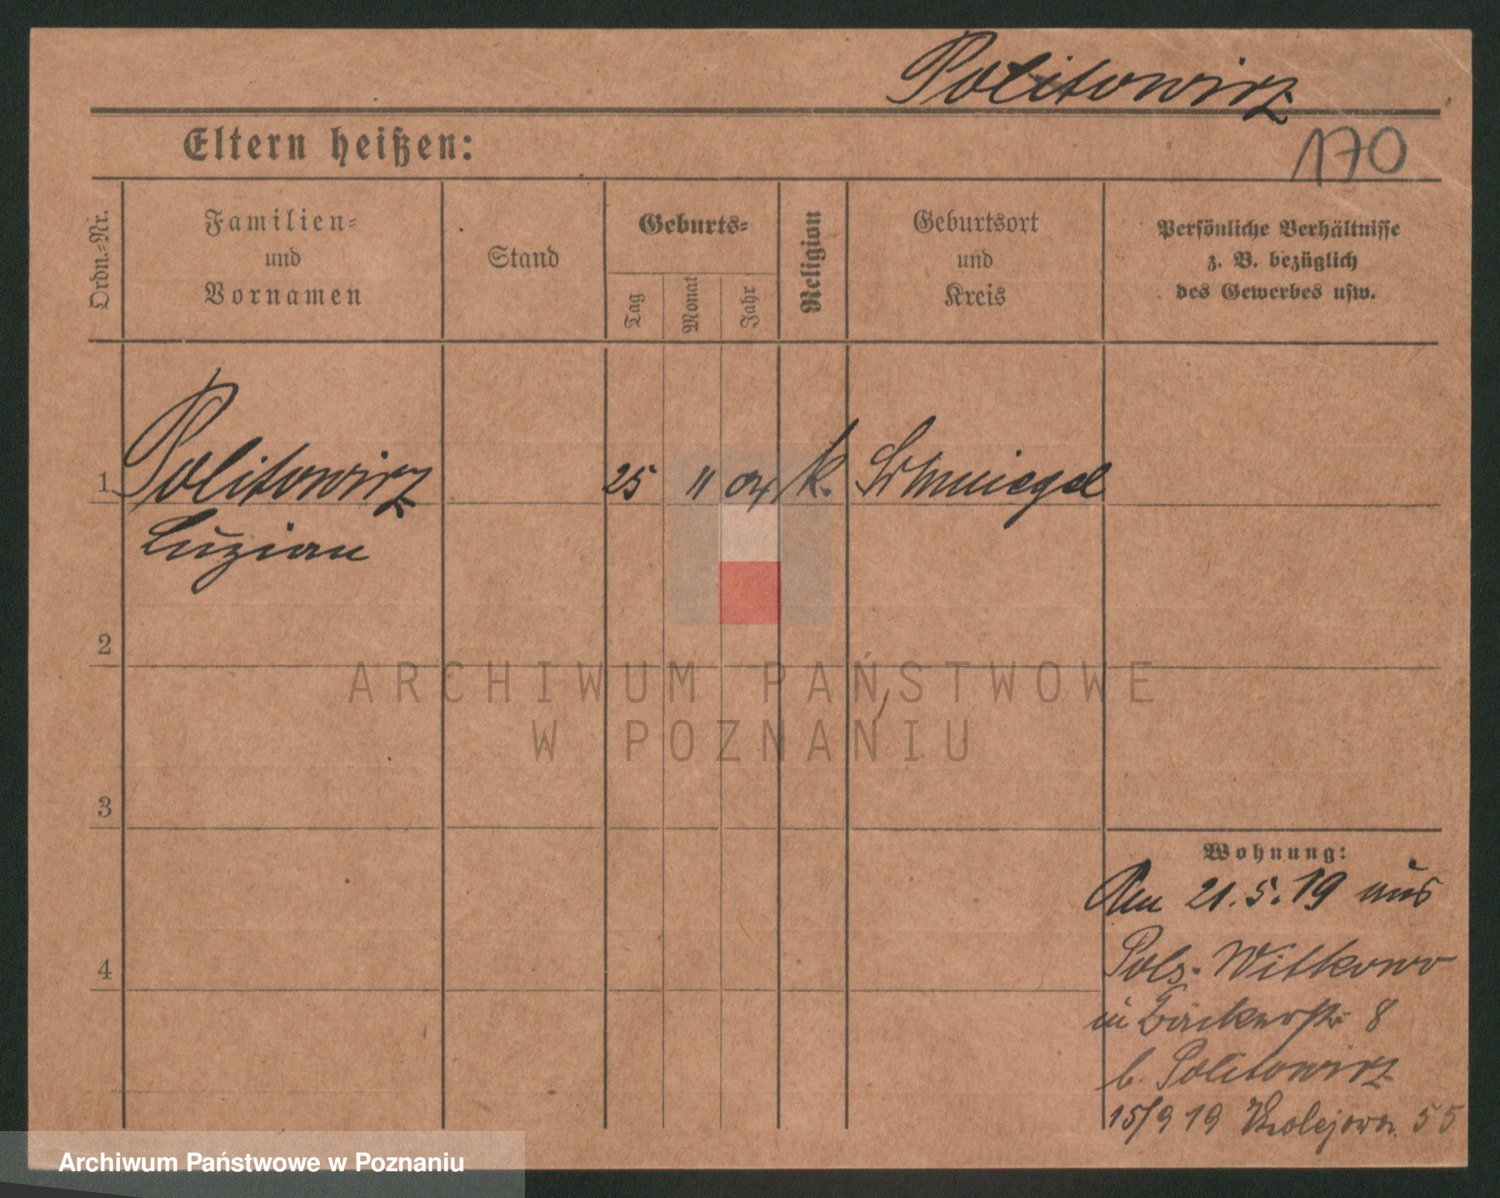 Politowicz
170
Eltern heißen:
Ordn.-Nr.
Familien-
und
Vornamen
Stand
Geburts-
Tag
Monat
Jahr
Religion
Geburtsort
und
Kreis
Persönliche Verhältnisse
z. B. bezüglich
des Gewerbes usw.
1 Politowicz 25 11 k. Schmiegel
Luzian
2
3
4
Wohnung:
Am 21.5.19 aus
Poln. Wilkowo
in Bäckerstr 8
b. Politowicz
15/9 19 Kolejowa 55
ARCHIWUM PAŃSTWOWE
W POZNANIU
Archiwum Państwowe w Poznaniu